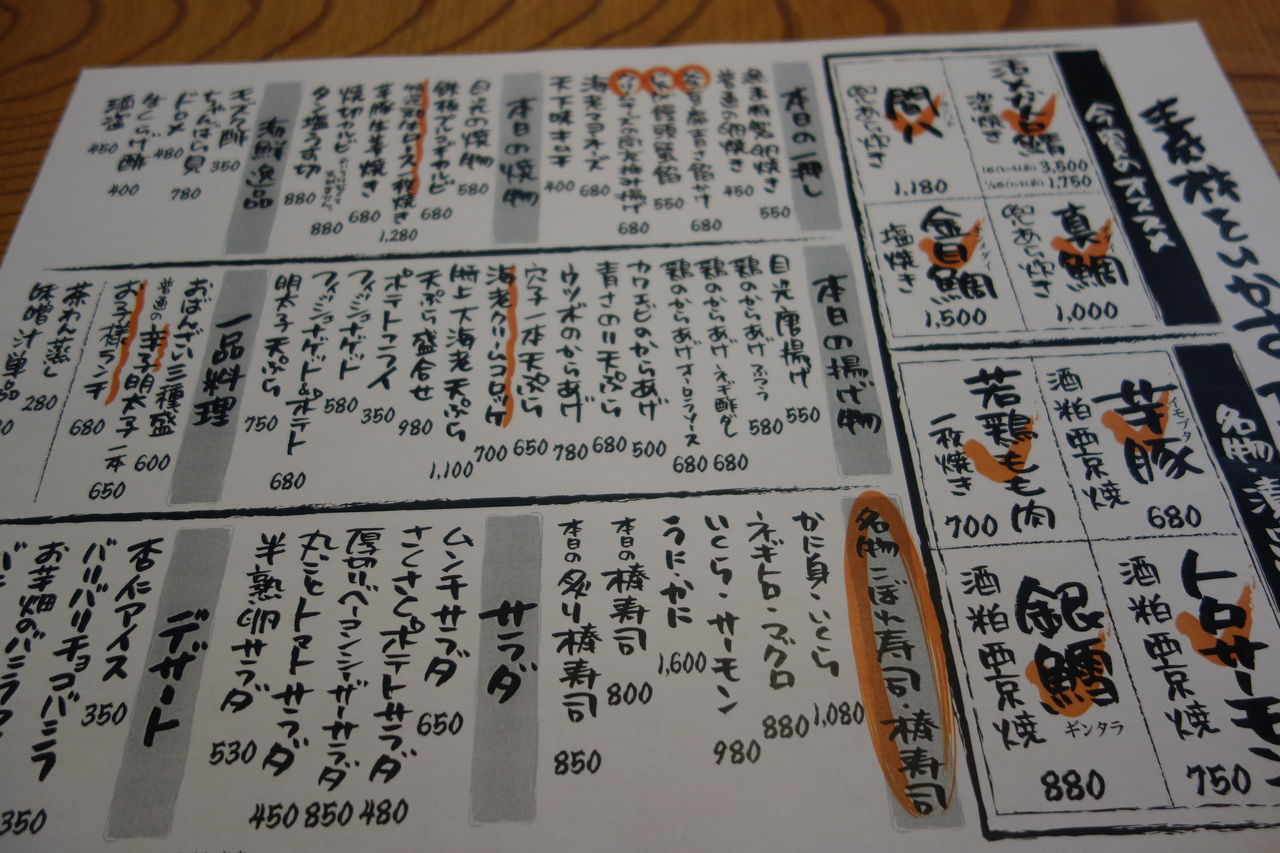 今宵のススメ
活〆真鯖
塩焼き
3,500
1,750
間八
兜あら炊き
1,180
真鯛
兜あら炊き
1,000
金目鯛
塩焼き
1,500
芋豚
イモブタ
酒粕西京焼
680
若鶏もも肉
一枚焼き
700
トロサーモン
酒粕西京焼
750
銀鱈
ギンタラ
酒粕西京焼
880
本日の一押し
550
普通の卵焼き
450
680
550
680
海老マヨネーズ
680
天下味キムチ
400
本日の焼物
目光の焼物
580
鉄板プルコギカルビ
680
1,280
芋豚生姜焼き
680
焼切りカルビ
880
タン塩うす切
880
海鮮逸品
モズク酢
350
ちゃんばら貝
780
ドロメ
480
生くらげ酢
400
酒盗
450
本日の揚げ物
目光唐揚げ
550
鶏のからあげ ふつう
580
鶏のからあげ ネギ酢ダレ
680
鶏のからあげ オーロラソース
680
カワエビのからあげ
500
青さのり天ぷら
680
ウツボのからあげ
780
穴子一本天ぷら
650
海老クリームコロッケ
700
特上大海老天ぷら
1,100
天ぷら盛合せ
980
ポテトフライ
350
フィッシュナゲット
580
フィッシュナゲット&ポテト
680
明太子天ぷら
750
一品料理
おばんざい三種盛
600
普通の辛子明太子 一本
650
お子様ランチ
680
茶わん蒸し
280
味噌汁単品
名物こぼれ寿司・棒寿司
かに身・いくら
1,080
ネギトロ・マグロ
880
いくら・サーモン
980
うに・かに
1,600
本日の棒寿司
800
本日の炙り棒寿司
850
サラダ
ムンチサラダ
650
さくさくポテトサラダ
480
厚切りベーコンシーザーサラダ
850
丸ごとトマトサラダ
450
半熟卵サラダ
530
デザート
杏仁アイス
350
バリバリチョコバニラ
350
お芋畑のバニラ